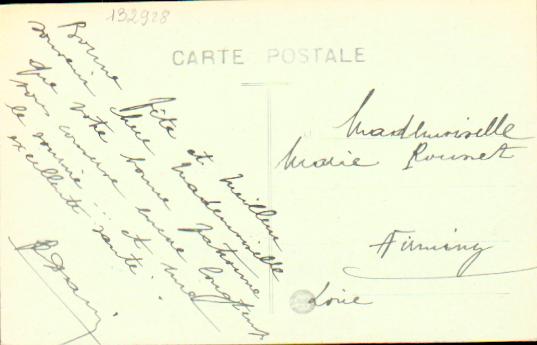 132928
CARTE POSTALE
Bonne fête et meilleur
souvenir chère Mademoiselle
que votre bonne Patronne
vous conserve encore longtemps
le sourire... et une
excellente santé.
Mademoiselle
Marie Rousset
Firminy
Loire